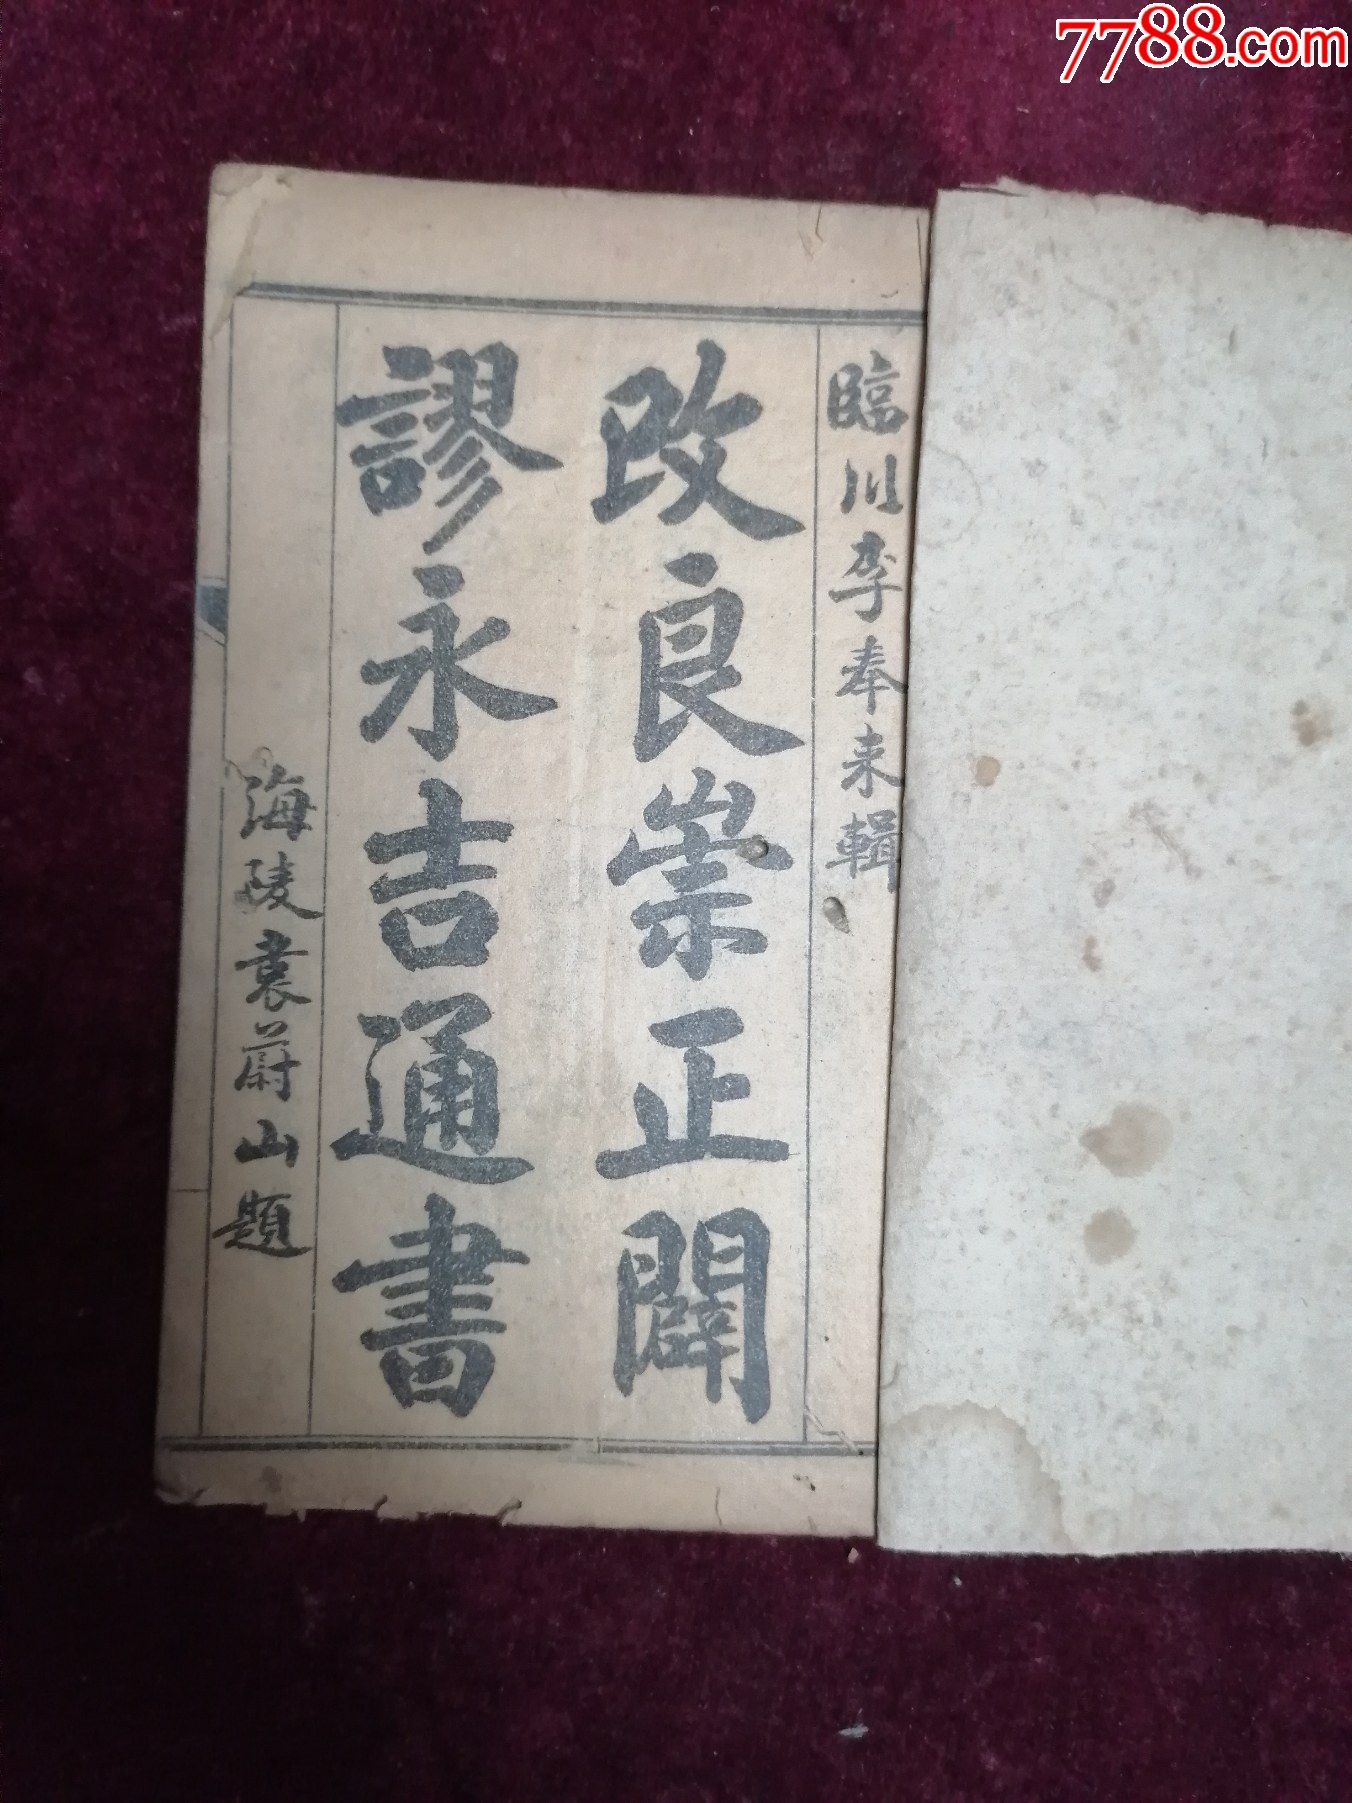 7788.com
臨川李奉来輯
改良崇正闢
謬永吉通書
海陵袁蔚山題